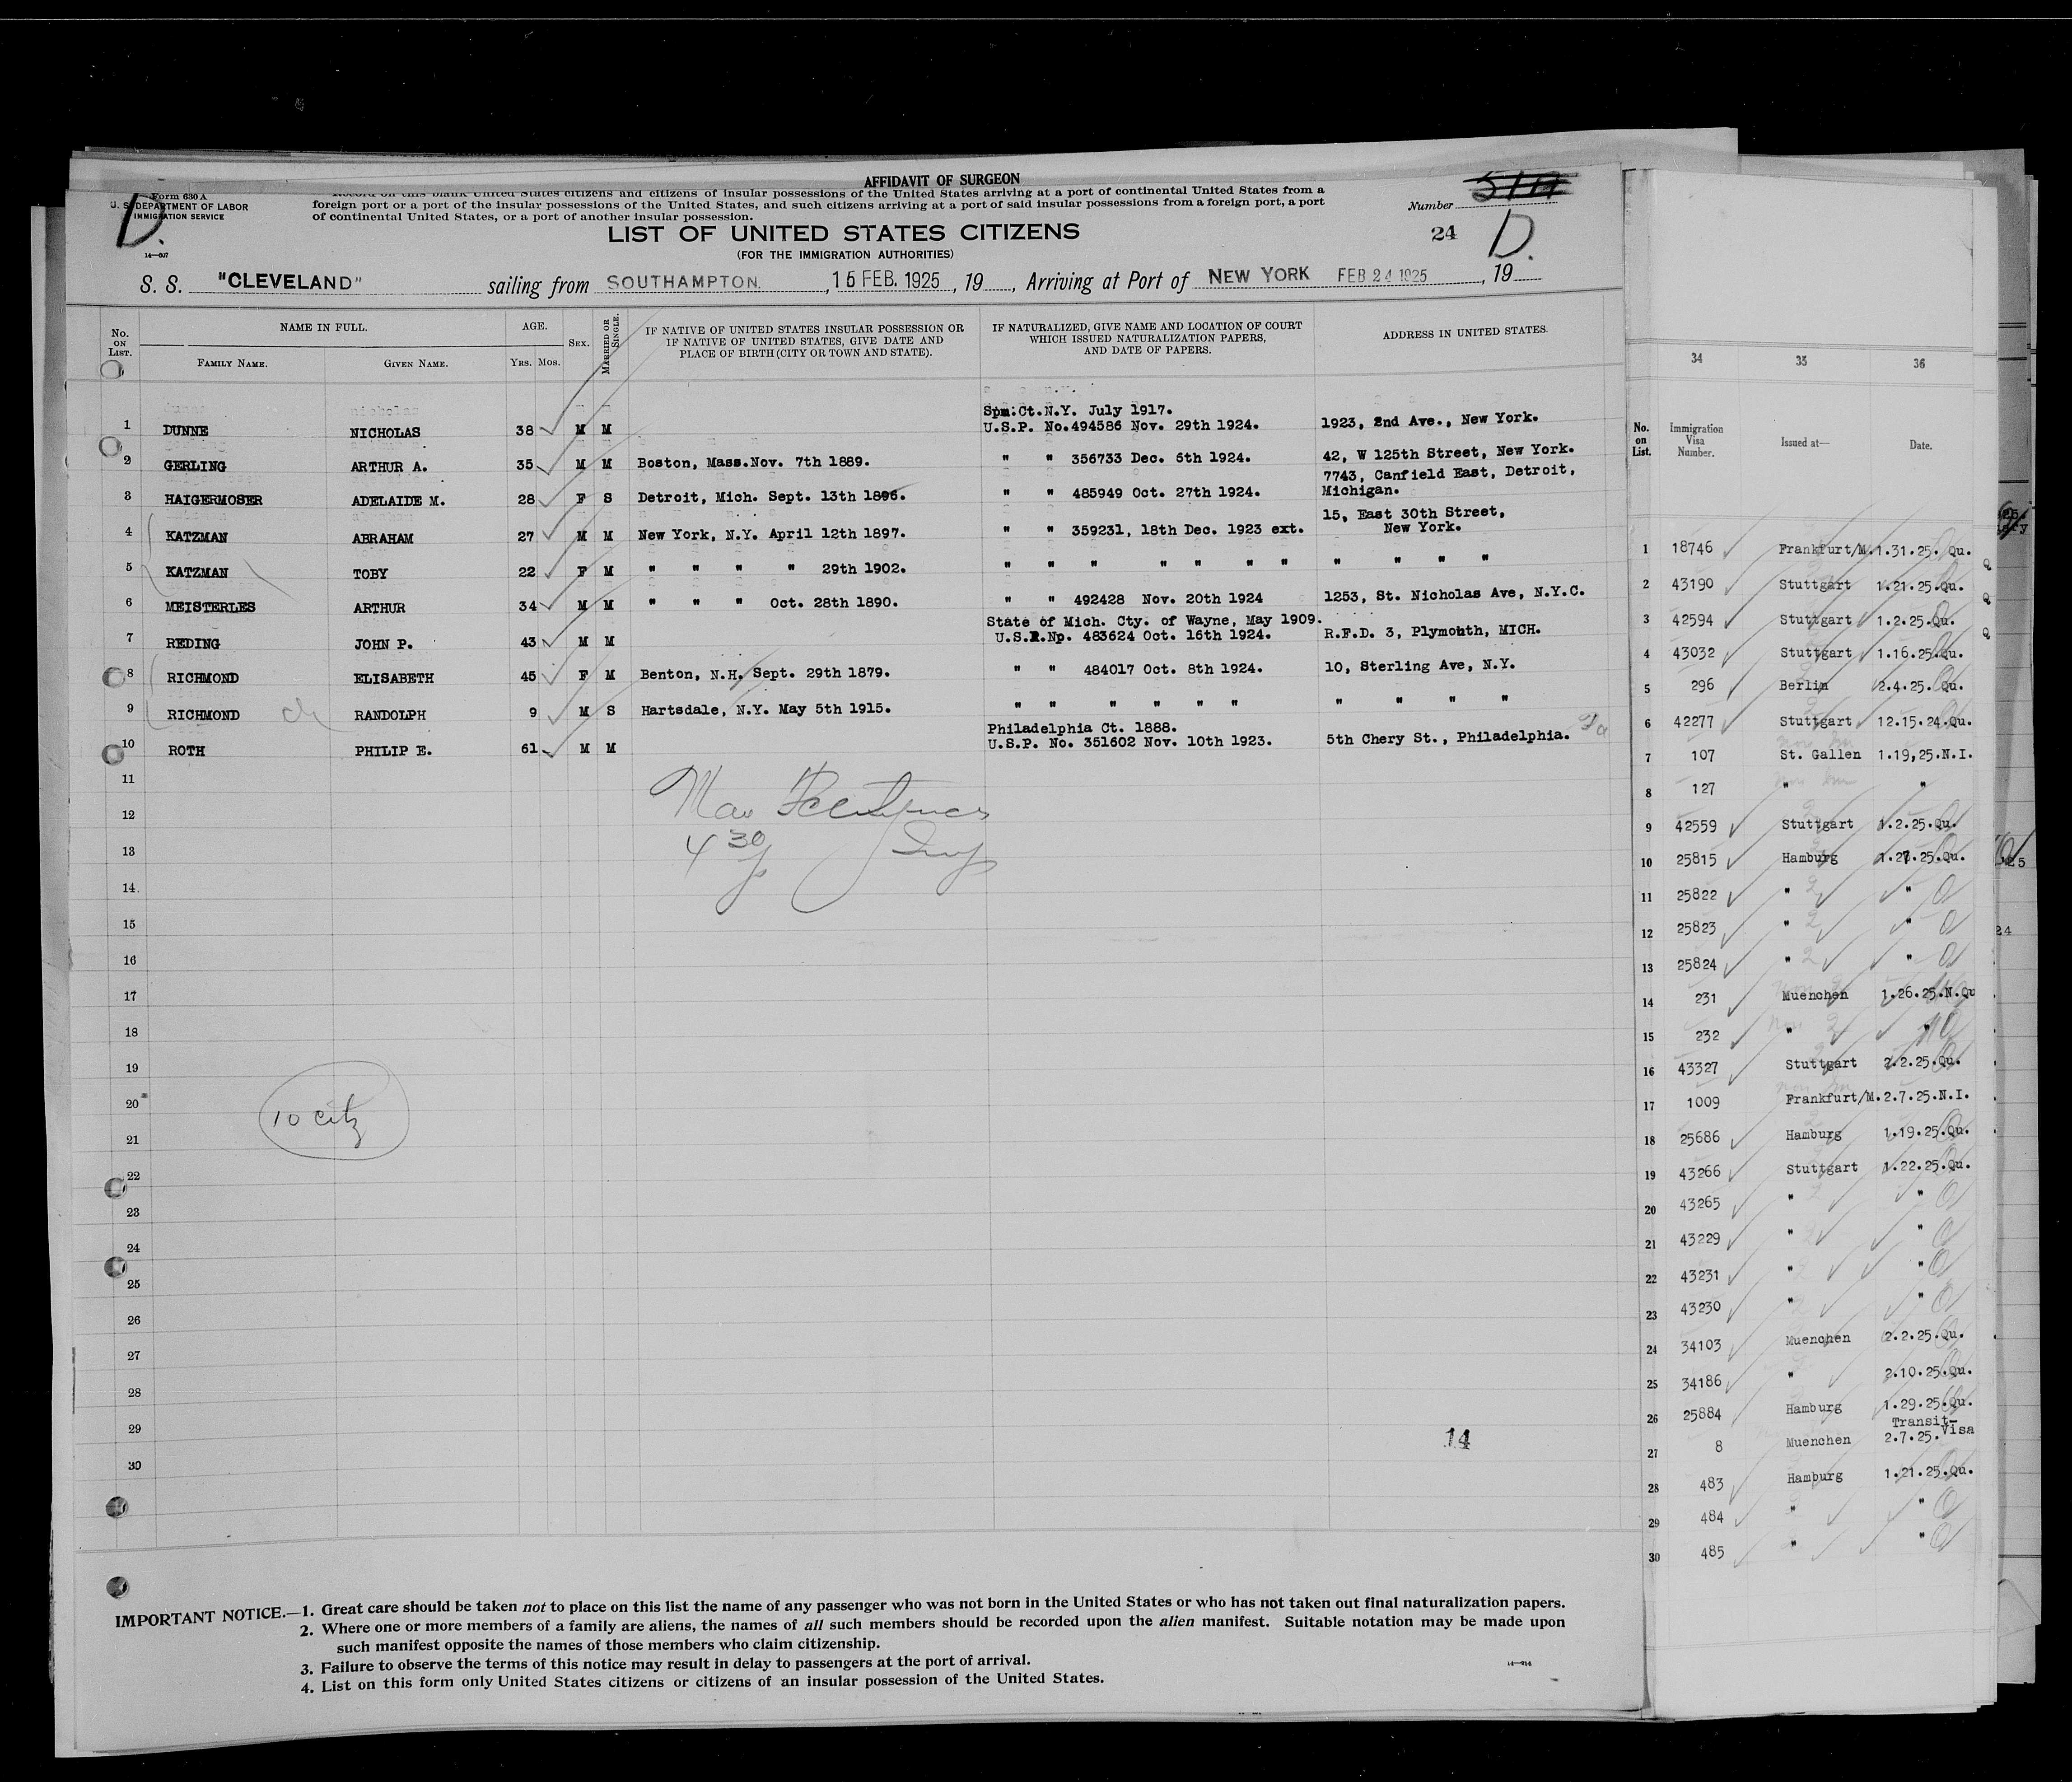 AFFIDAVIT OF SURGEON
Form 630 A
U. S. DEPARTMENT OF LABOR
IMMIGRATION SERVICE
D.
14—607
Record on this blank United States citizens and citizens of insular possessions of the United States arriving at a port of continental United States from a
foreign port or a port of the insular possessions of the United States, and such citizens arriving at a port of said insular possessions from a foreign port, a port
of continental United States, or a port of another insular possession.
Number
LIST OF UNITED STATES CITIZENS
24 D.
(FOR THE IMMIGRATION AUTHORITIES)
S. S. "CLEVELAND" sailing from SOUTHAMPTON, 15 FEB. 1925, 19 , Arriving at Port of NEW YORK FEB 24 1925, 19
No. ON LIST.
NAME IN FULL.
FAMILY NAME. GIVEN NAME.
AGE.
YRS. MOS.
SEX.
MARRIED OR SINGLE.
IF NATIVE OF UNITED STATES INSULAR POSSESSION OR
IF NATIVE OF UNITED STATES, GIVE DATE AND
PLACE OF BIRTH (CITY OR TOWN AND STATE).
IF NATURALIZED, GIVE NAME AND LOCATION OF COURT
WHICH ISSUED NATURALIZATION PAPERS,
AND DATE OF PAPERS.
ADDRESS IN UNITED STATES.
Spm.Ct.N.Y. July 1917.
1 DUNNE NICHOLAS 38 M M U.S.P. No.494586 Nov. 29th 1924. 1923, 2nd Ave., New York.
2 GERLING ARTHUR A. 35 M M Boston, Mass.Nov. 7th 1889. " " 356733 Dec. 6th 1924. 42, W 125th Street, New York.
7743, Canfield East, Detroit,
3 HAIGERMOSER ADELAIDE M. 28 F S Detroit, Mich. Sept. 13th 1896. " " 485949 Oct. 27th 1924. Michigan.
15, East 30th Street,
4 KATZMAN ABRAHAM 27 M M New York, N.Y. April 12th 1897. " " 359231, 18th Dec. 1923 ext. New York.
5 KATZMAN TOBY 22 F M " " " " 29th 1902. " " " " " " " " " " "
6 MEISTERLES ARTHUR 34 M M " " " Oct. 28th 1890. " " 492428 Nov. 20th 1924 1253, St. Nicholas Ave, N.Y.C.
State of Mich. Cty. of Wayne, May 1909.
7 REDING JOHN P. 43 M M U.S.P.No. 483624 Oct. 16th 1924. R.F.D. 3, Plymouth, MICH.
8 RICHMOND ELISABETH 45 F M Benton, N.H. Sept. 29th 1879. " " 484017 Oct. 8th 1924. 10, Sterling Ave, N.Y.
9 RICHMOND RANDOLPH 9 M S Hartsdale, N.Y. May 5th 1915. " " " " " " " " " "
Philadelphia Ct. 1888.
10 ROTH PHILIP E. 61 M M U.S.P. No. 351602 Nov. 10th 1923. 5th Chery St., Philadelphia.
11
12
13
4 30
14
15
16
17
18
19
20
10 citz
21
22
23
24
25
26
27
28
29
14
30
IMPORTANT NOTICE.—1. Great care should be taken not to place on this list the name of any passenger who was not born in the United States or who has not taken out final naturalization papers.
2. Where one or more members of a family are aliens, the names of all such members should be recorded upon the alien manifest. Suitable notation may be made upon
such manifest opposite the names of those members who claim citizenship.
3. Failure to observe the terms of this notice may result in delay to passengers at the port of arrival.
4. List on this form only United States citizens or citizens of an insular possession of the United States.
34 35 36
No. on List.
Immigration Visa Number.
Issued at—
Date.
1 18746 Frankfurt/M. 1.31.25. Qu.
2 43190 Stuttgart 1.21.25.Qu.
3 42594 Stuttgart 1.2.25.Qu.
4 43032 Stuttgart 1.16.25.Qu.
5 296 Berlin 2.4.25. Qu.
6 42277 Stuttgart 12.15.24.Qu.
7 107 St. Gallen 1.19,25.N.I.
8 127 " "
9 42559 Stuttgart 1.2.25.Qu.
10 25815 Hamburg 1.27.25.Qu.
11 25822 " "
12 25823 " "
13 25824 " "
14 231 Muenchen 1.26.25.N.Qu
15 232 " "
16 43327 Stuttgart 2.2.25.Qu.
17 1009 Frankfurt/M. 2.7.25.N.I.
18 25686 Hamburg 1.19.25.Qu.
19 43266 Stuttgart 1.22.25.Qu.
20 43265 " "
21 43229 " "
22 43231 " "
23 43230 " "
24 34103 Muenchen 2.2.25.Qu.
25 34186 " 2.10.25.Qu.
26 25884 Hamburg 1.29.25.Qu.
Transit-
27 8 Muenchen 2.7.25.Visa
28 483 Hamburg 1.21.25.Qu.
29 484 " "
30 485 " "